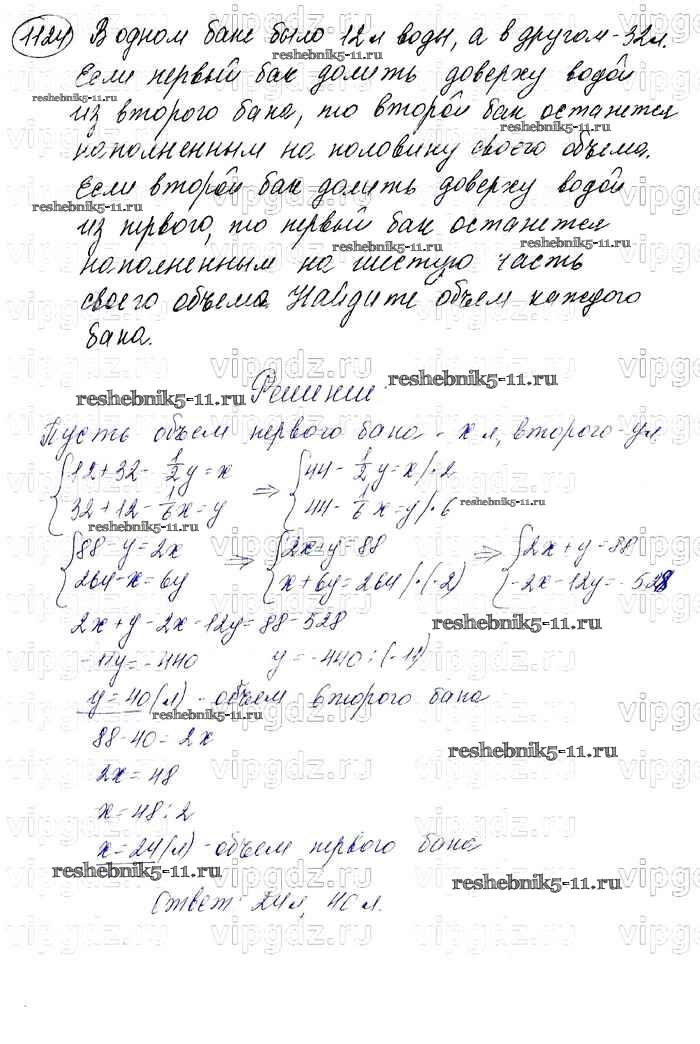 1124) В одном баке было 12 л воды, а в другом - 32 л.
Если первый бак долить доверху водой
из второго бака, то второй бак останется
наполненным на половину своего объема.
Если второй бак долить доверху водой
из первого, то первый бак останется
наполненным на шестую часть
своего объема. Найдите объем каждого
бака.
Решение.
Пусть объем первого бака - x л, второго - y л
{12+32-1/2y=x => {44-1/2y=x/·2
{32+12-1/6x=y {44-1/6x=y/·6
{88-y=2x => {2x+y=88 => {2x+y=88
{264-x=6y {x+6y=264/·(-2) {-2x-12y=-528
2x+y-2x-12y=88-528
-11y=-440 y=-440:(-11)
y=40(л) - объем второго бака
88-40=2x
2x=48
x=48:2
x=24(л) - объем первого бака
Ответ: 24л, 40л.
reshebnik5-11.ru
vipgdz.ru